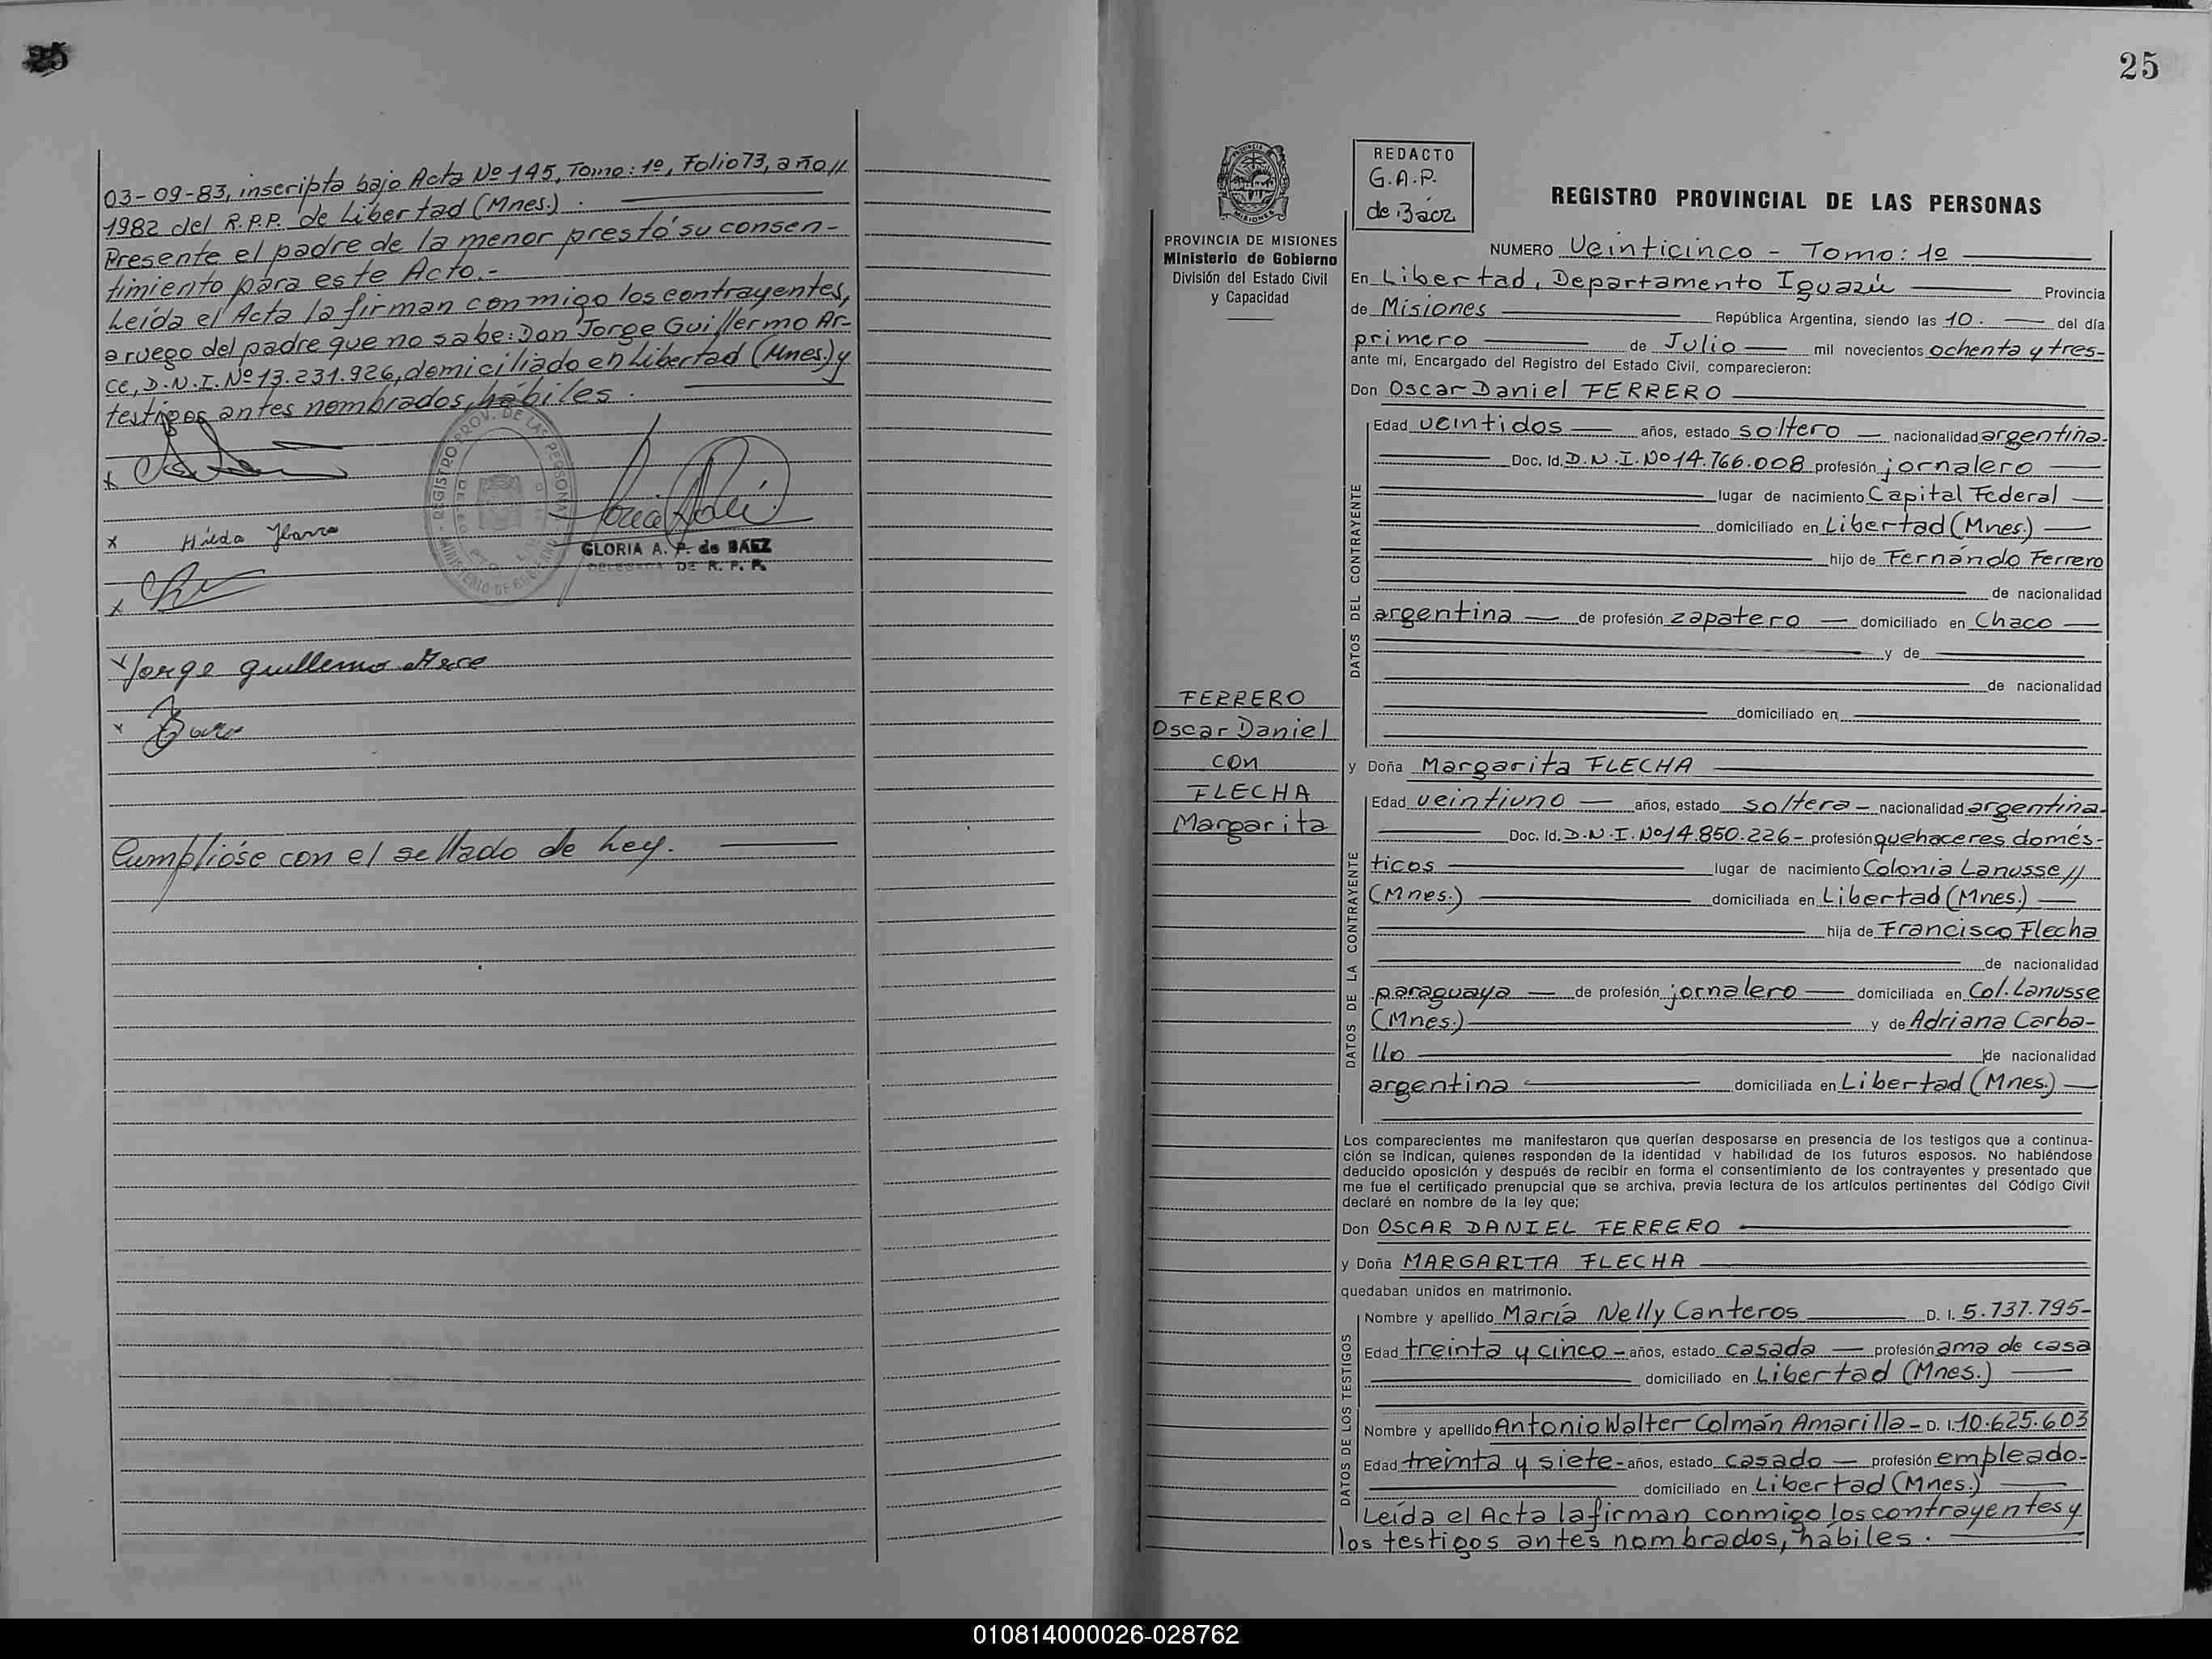 25
03-09-83, inscripta bajo Acta Nº 145, Tomo: 1º, Folio 73, año//
1982 del R.P.P. de Libertad (Mnes.).
Presente el padre de la menor prestó su consen-
timiento para este Acto.-
Leída el Acta la firman conmigo los contrayentes,
a ruego del padre que no sabe: Don Jorge Guillermo Ar-
ce, D.N.I. Nº 13.231.926, domiciliado en Libertad (Mnes.) y
testigos antes nombrados, hábiles.
x
x Hilda Ibarra
GLORIA A. P. de BÁEZ
DELEGADA DE R. P. P.
x
x Jorge Guillermo Arce
x
Cumplióse con el sellado de Ley.
25
PROVINCIA DE MISIONES
Ministerio de Gobierno
División del Estado Civil
y Capacidad
REDACTO
G.A.P.
de Báez
REGISTRO PROVINCIAL DE LAS PERSONAS
NUMERO Veinticinco - Tomo: 1º
En Libertad, Departamento Iguazú Provincia
de Misiones República Argentina, siendo las 10. del día
primero de Julio mil novecientos ochenta y tres-
ante mí, Encargado del Registro del Estado Civil, comparecieron:
Don Oscar Daniel FERRERO
DATOS DEL CONTRAYENTE
Edad veintidos años, estado soltero nacionalidad argentina.
Doc. Id. D.N.I. Nº 14.766.008 profesión jornalero
lugar de nacimiento Capital Federal
domiciliado en Libertad (Mnes.)
hijo de Fernándo Ferrero
de nacionalidad
argentina de profesión zapatero domiciliado en Chaco
y de
de nacionalidad
domiciliado en
FERRERO
Oscar Daniel
con
FLECHA
Margarita
y Doña Margarita FLECHA
DATOS DE LA CONTRAYENTE
Edad veintiuno años, estado soltera - nacionalidad argentina.
Doc. Id. D.N.I. Nº 14.850.226 - profesión quehaceres domés-
ticos lugar de nacimiento Colonia Lanusse//
(Mnes.) domiciliada en Libertad (Mnes.)
hija de Francisco Flecha
de nacionalidad
paraguaya de profesión jornalero domiciliada en Col. Lanusse
(Mnes.) y de Adriana Carba-
llo de nacionalidad
argentina domiciliada en Libertad (Mnes.)
Los comparecientes me manifestaron que querían desposarse en presencia de los testigos que a continua-
ción se indican, quienes responden de la identidad y habilidad de los futuros esposos. No habiéndose
deducido oposición y después de recibir en forma el consentimiento de los contrayentes y presentado que
me fue el certificado prenupcial que se archiva, previa lectura de los artículos pertinentes del Código Civil
declaré en nombre de la ley que;
Don OSCAR DANIEL FERRERO
y Doña MARGARITA FLECHA
quedaban unidos en matrimonio.
DATOS DE LOS TESTIGOS
Nombre y apellido María Nelly Canteros D. I. 5.737.795-
Edad treinta y cinco - años, estado casada profesión ama de casa
domiciliado en Libertad (Mnes.)
Nombre y apellido Antonio Walter Colmán Amarilla - D. I. 10.625.603
Edad treinta y siete - años, estado casado profesión empleado-
domiciliado en Libertad (Mnes.)
Leída el Acta la firman conmigo los contrayentes y
los testigos antes nombrados, hábiles.
010814000026-028762